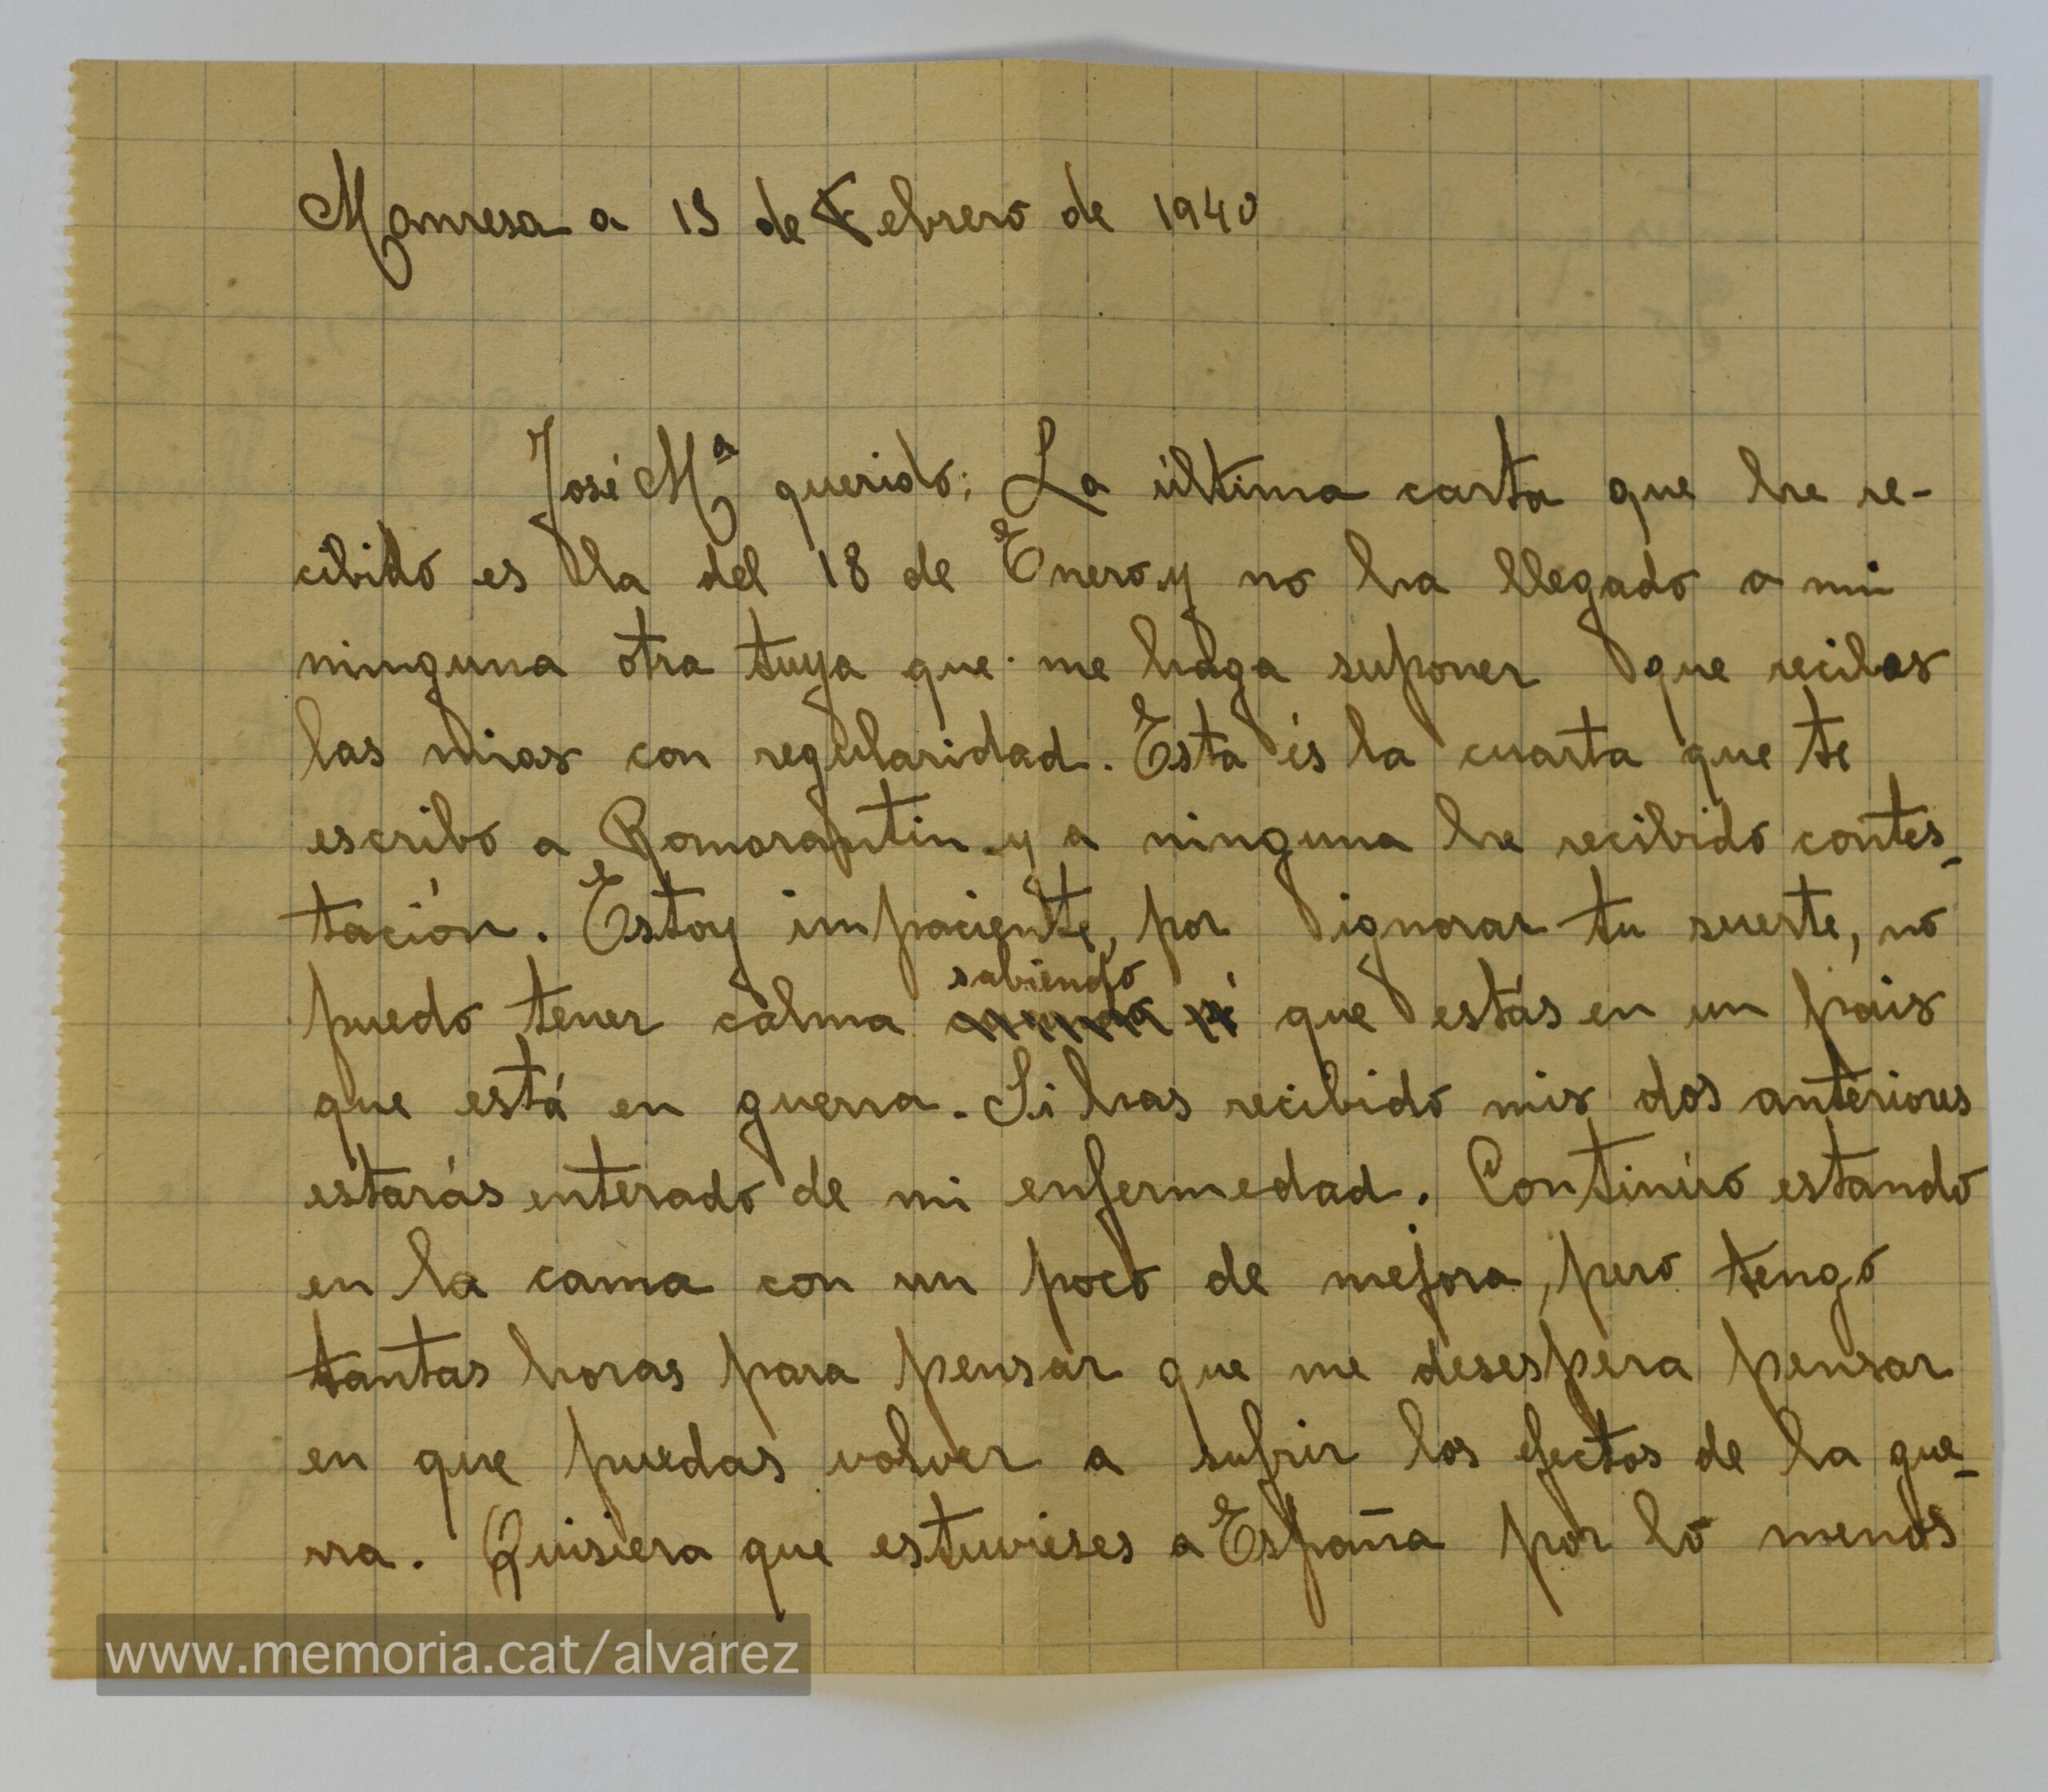 Manresa a 15 de Febrero de 1940
José Mª querido: La última carta que he re-
cibido es la del 18 de Enero y no ha llegado a mi
ninguna otra tuya que me haga suponer que recibas
las mias con regularidad. Esta és la cuarta que te
escribo a Romorantin y a ninguna he recibido contes-
tación. Estoy impaciente, por ignorar tu suerte, no
sabiendo
puedo tener calma que estás en un pais
que está en guerra. Si has recibido mis dos anteriores
estarás enterado de mi enfermedad. Continúo estando
en la cama con un poco de mejora, pero tengo
tantas horas para pensar que me desespera pensar
en que puedas volver a sufrir los efectos de la gue-
rra. Quisiera que estuvieses a España por lo menos
www.memoria.cat/alvarez